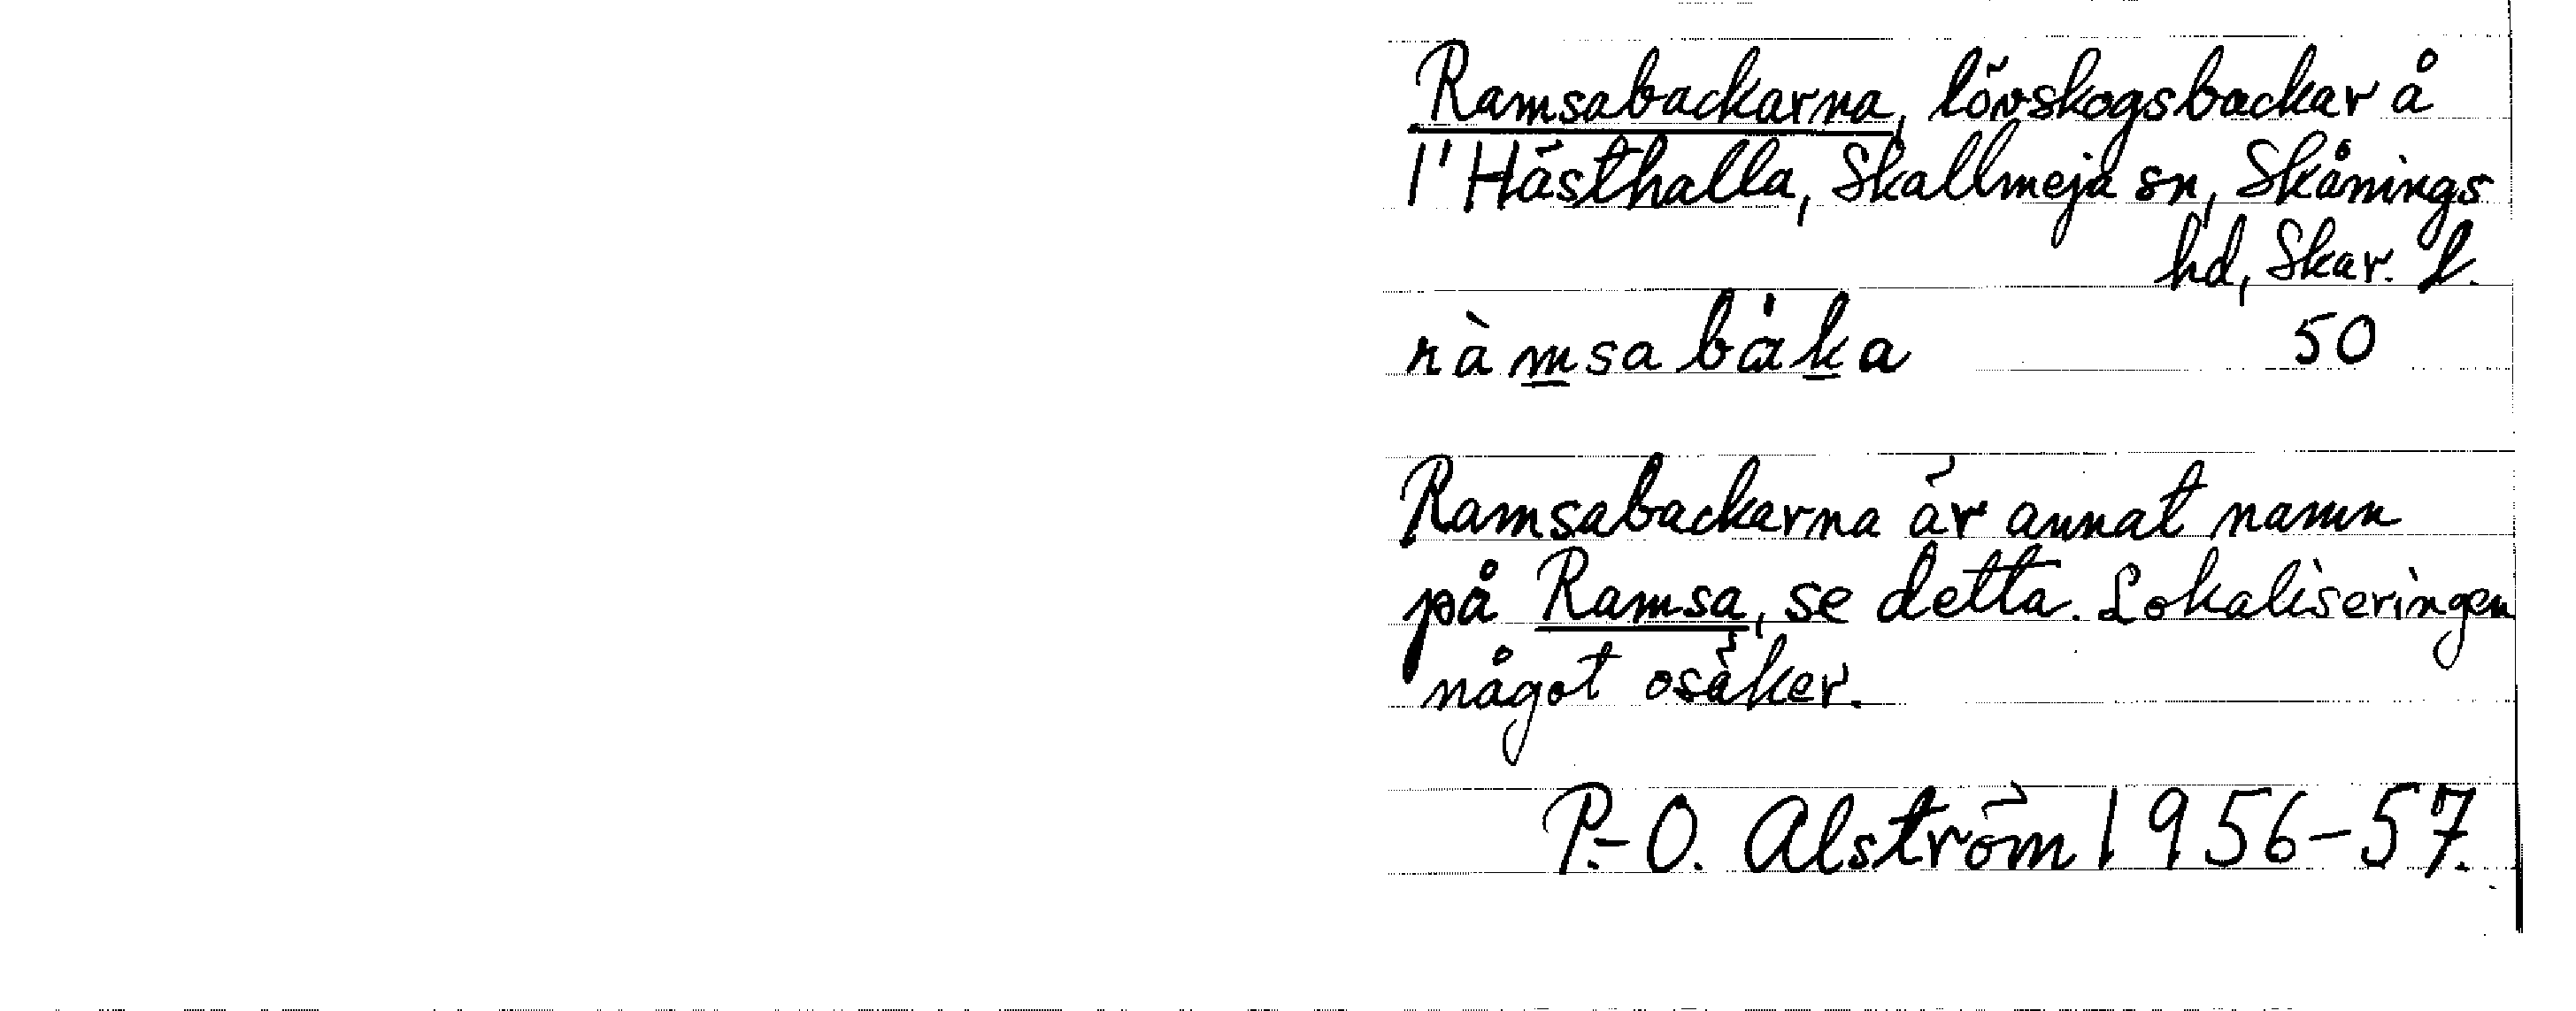 Ramsabackarna, lövskogsbackar å
1' Hästhalla, Skallmeja sn, Skånings
hd, Skar. l.
ràmsabàka 50
Ramsabackarna är annat namn
på Ramsa, se detta. Lokaliseringen
något osäker.
P.-O. Alström 1956-57.